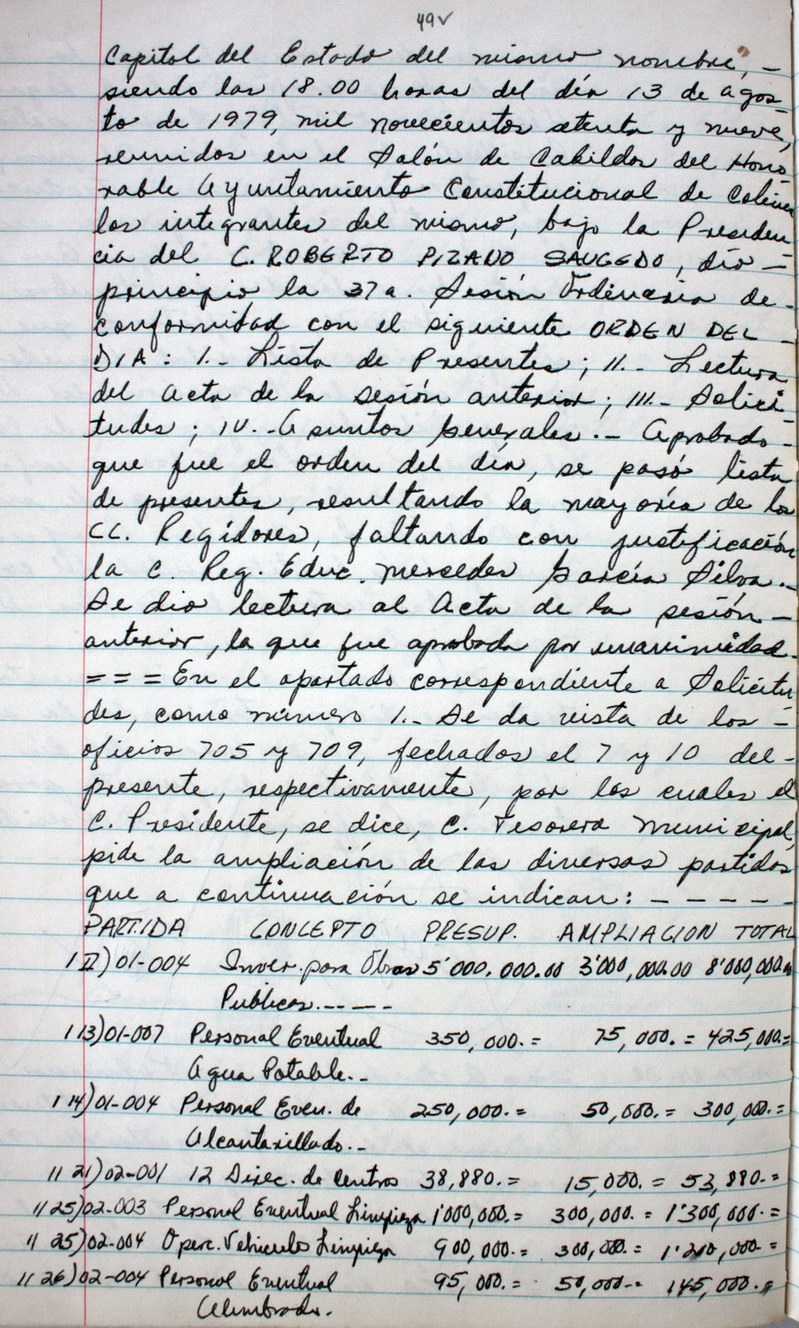 49v
Capitol del Estado del mismo nombre, -
siendo las 18.00 horas del día 13 de agos-
to de 1979, mil novecientos setenta y nueve,
reunidos en el Salón de Cabildos del Hono-
rable Ayuntamiento Constitucional de Colima
los integrantes del mismo, bajo la Presiden
cia del C. ROBERTO PIZANO SAUCEDO, dio -
principio la 37a. Sesión Ordinaria de-
conformidad con el siguiente ORDEN DEL -
DIA: I.- Lista de Presentes; II.- Lectura
del acta de la sesión anterior; III.- Solici-
tudes; IV.- Asuntos Generales.- Aprobado-
que fue el orden del día, se pasó lista
de presentes, resultando la mayoría de los
CC. Regidores, faltando con justificación
la C. Reg. Educ. Mercedes García Silva.-
Se dio lectura al Acta de la sesión -
anterior, la que fue aprobada por unanimidad.
= = = En el apartado correspondiente a Solicitu
des, como número 1.- Se da vista de los -
oficios 705 y 709, fechados el 7 y 10 del-
presente, respectivamente, por los cuales el
C. Presidente, se dice, C. Tesorera Municipal,
pide la ampliación de las diversas partidas
que a continuación se indican: - - - - -
PARTIDA CONCEPTO PRESUP. AMPLIACION TOTAL
01-004 Inver. para Obras 5'000,000.00 3'000,000.00 8'000,000.00
Publicas.- - - -
113)01-007 Personal Eventual 350,000.= 75,000.= 425,000.=
Agua Potable.-
114)01-004 Personal Even. de 250,000.= 50,000.= 300,000.=
Alcantarillado.-
1121)02-001 12 Direc. de Centros 38,880.= 15,000.= 53,880.=
1125)02-003 Personal Eventual Limpieza 1'000,000.= 300,000.= 1'300,000.=
1125)02-004 Oper. Vehiculos Limpieza 900,000.= 300,000.= 1'200,000.=
1126)02-004 Personal Eventual 95,000.= 50,000.= 145,000.=
Alumbrado.-